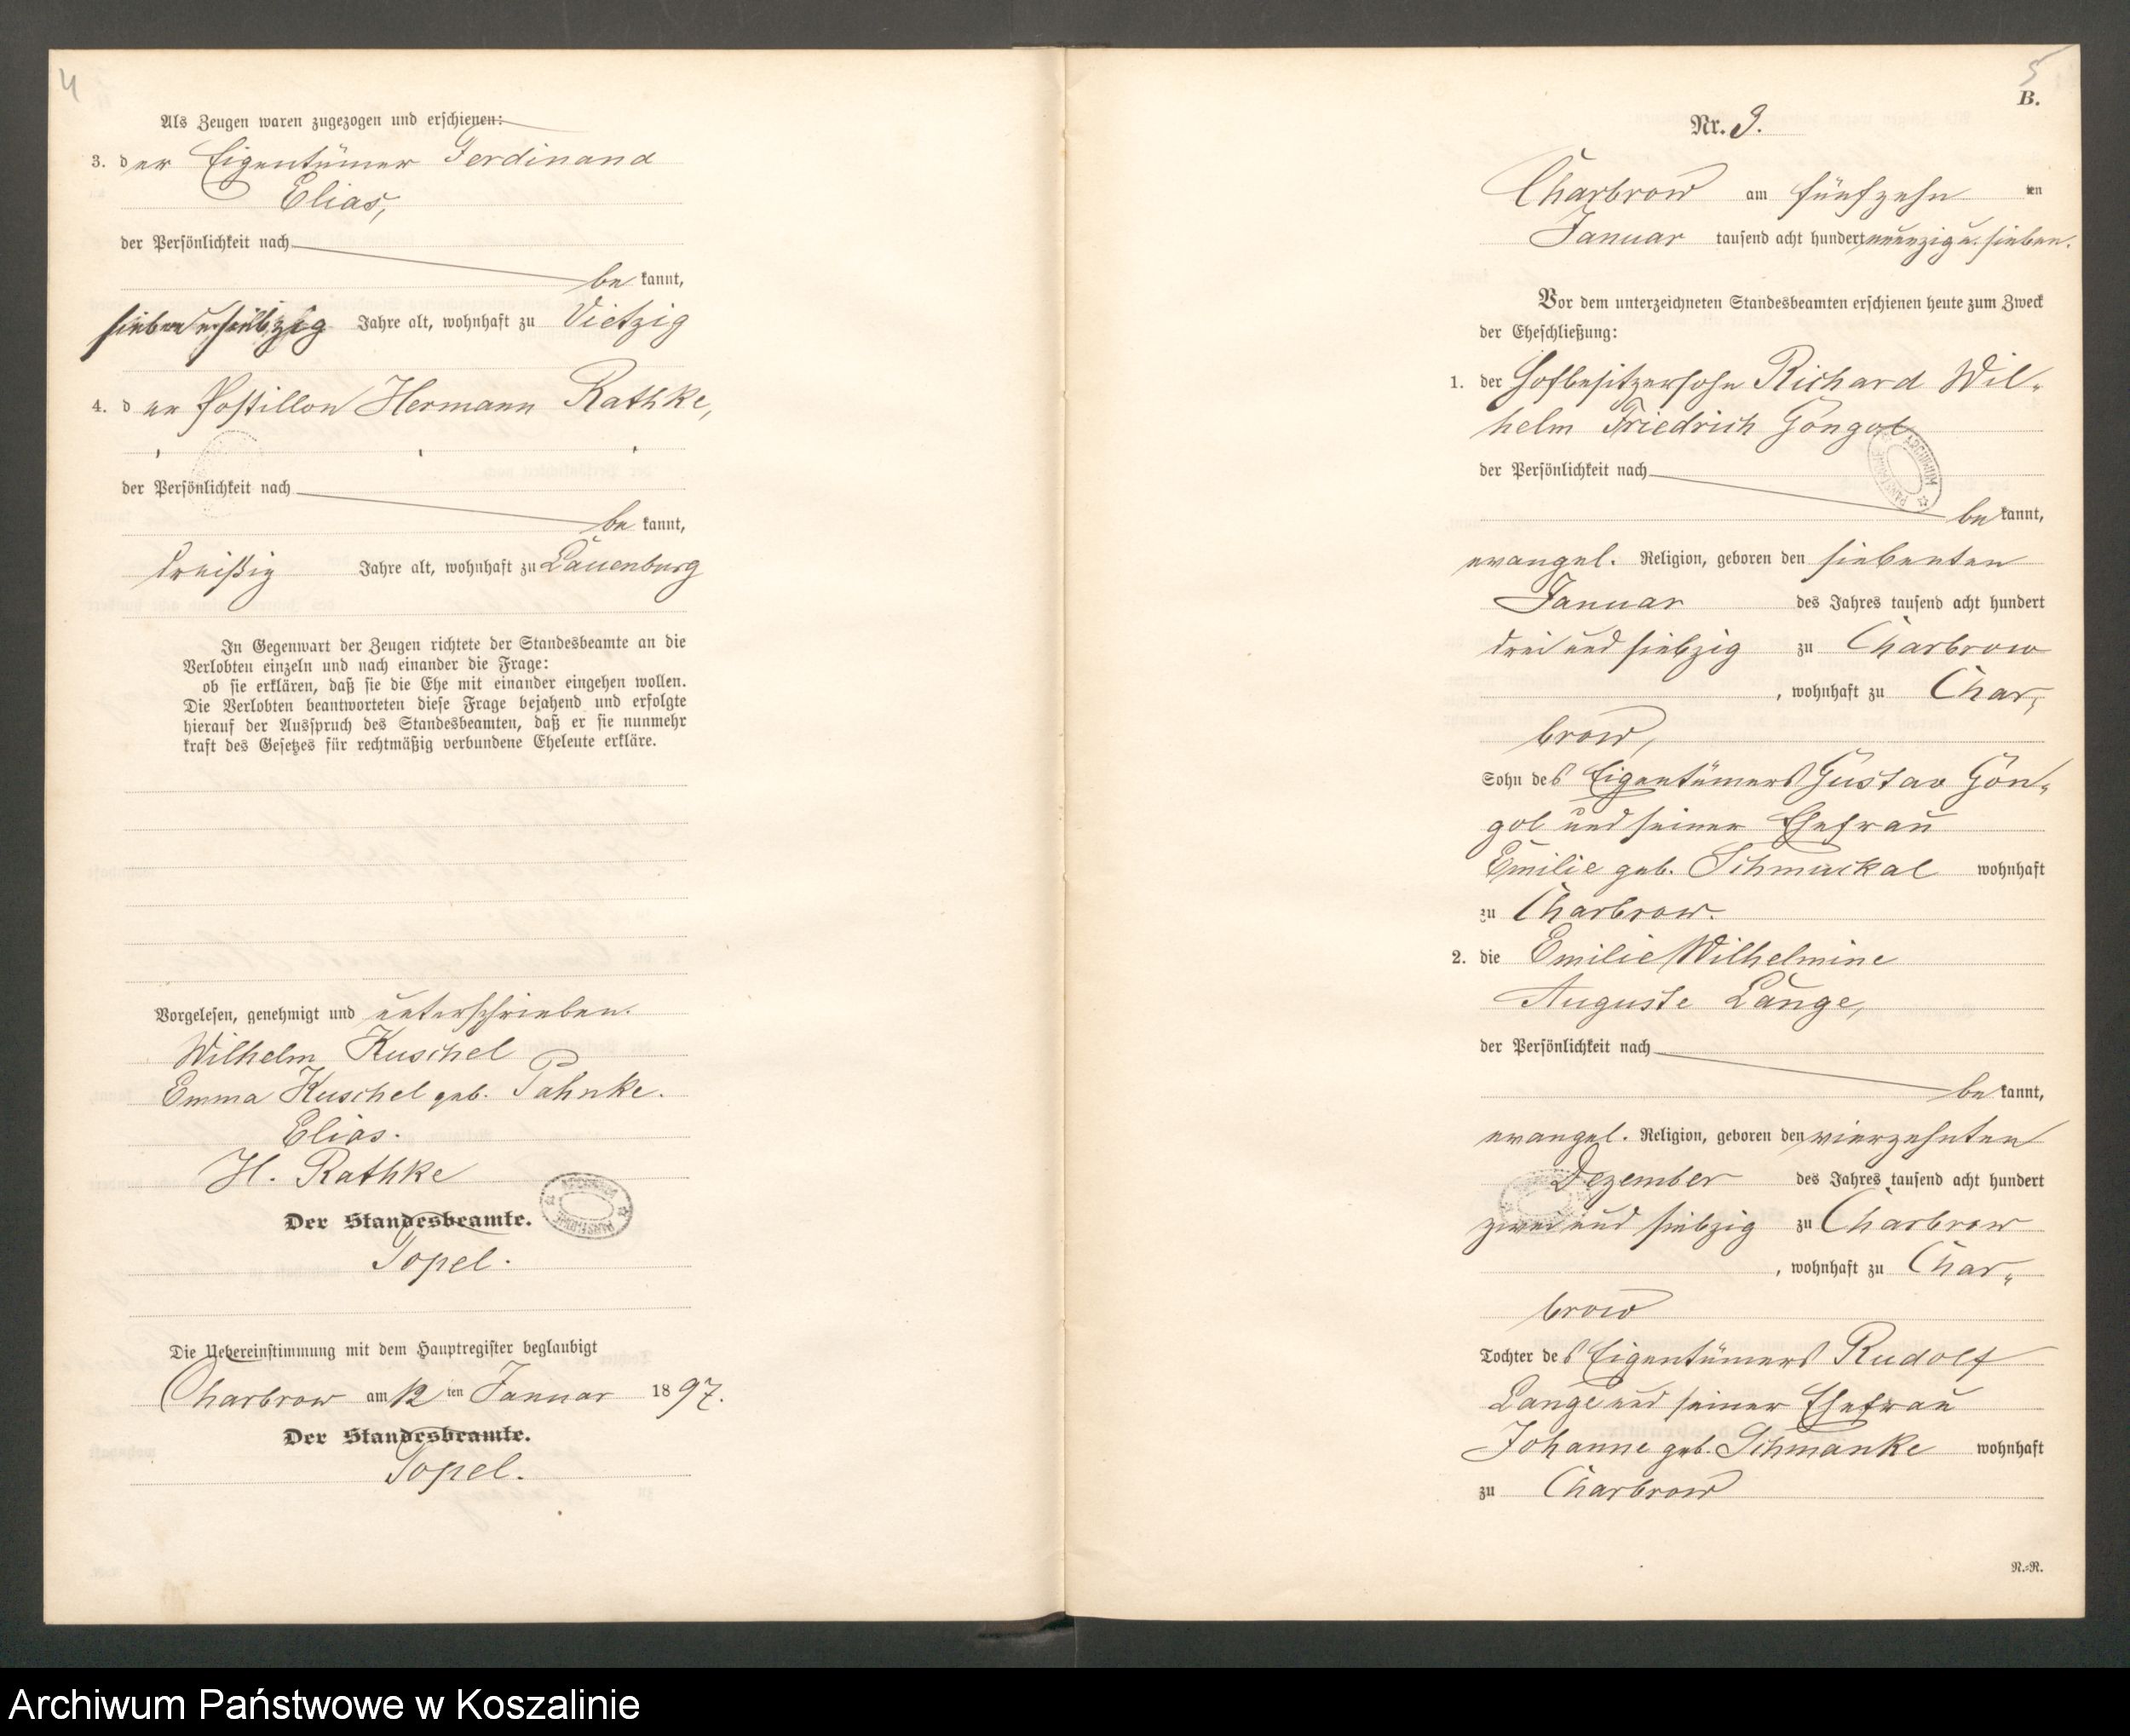 4
Als Zeugen waren zugezogen und erschienen:
3. der Eigentümer Ferdinand
Elias,
der Persönlichkeit nach
bekannt,
siebenundsiebzig Jahre alt, wohnhaft zu Vietzig
4. der Postillon Hermann Rathke,
der Persönlichkeit nach
bekannt,
dreißig Jahre alt, wohnhaft zu Lauenburg
In Gegenwart der Zeugen richtete der Standesbeamte an die
Verlobten einzeln und nach einander die Frage:
ob sie erklären, daß sie die Ehe mit einander eingehen wollen.
Die Verlobten beantworteten diese Frage bejahend und erfolgte
hierauf der Ausspruch des Standesbeamten, daß er sie nunmehr
kraft des Gesetzes für rechtmäßig verbundene Eheleute erkläre.
Vorgelesen, genehmigt und unterschrieben.
Wilhelm Kuschel
Emma Kuschel geb. Pahnke.
Elias.
H. Rathke
Der Standesbeamte.
Topel.
Die Uebereinstimmung mit dem Hauptregister beglaubigt
Charbrow am 12 ten Januar 1897.
Der Standesbeamte.
Topel.
5
B.
Nr. 3.
Charbrow am fünfzehn ten
Januar tausend acht hundert neunzig u. sieben.
Vor dem unterzeichneten Standesbeamten erschienen heute zum Zweck
der Eheschließung:
1. der Hofbesitzersohn Richard Wil-
helm Friedrich Göngol
der Persönlichkeit nach
bekannt,
evangel. Religion, geboren den siebenten
Januar des Jahres tausend acht hundert
drei und siebzig zu Charbrow
, wohnhaft zu Char-
brow,
Sohn des Eigentümers Gustav Gön-
gol und seiner Ehefrau
Emilie geb. Schmuckal wohnhaft
zu Charbrow.
2. die Emilie Wilhelmine
Auguste Lange,
der Persönlichkeit nach
bekannt,
evangel. Religion, geboren den vierzehnten
Dezember des Jahres tausend acht hundert
zwei und siebzig zu Charbrow
, wohnhaft zu Char-
brow
Tochter des Eigentümers Rudolf
Lange und seiner Ehefrau
Johanne geb. Schmanke wohnhaft
zu Charbrow
N.=R.
Archiwum Państwowe w Koszalinie